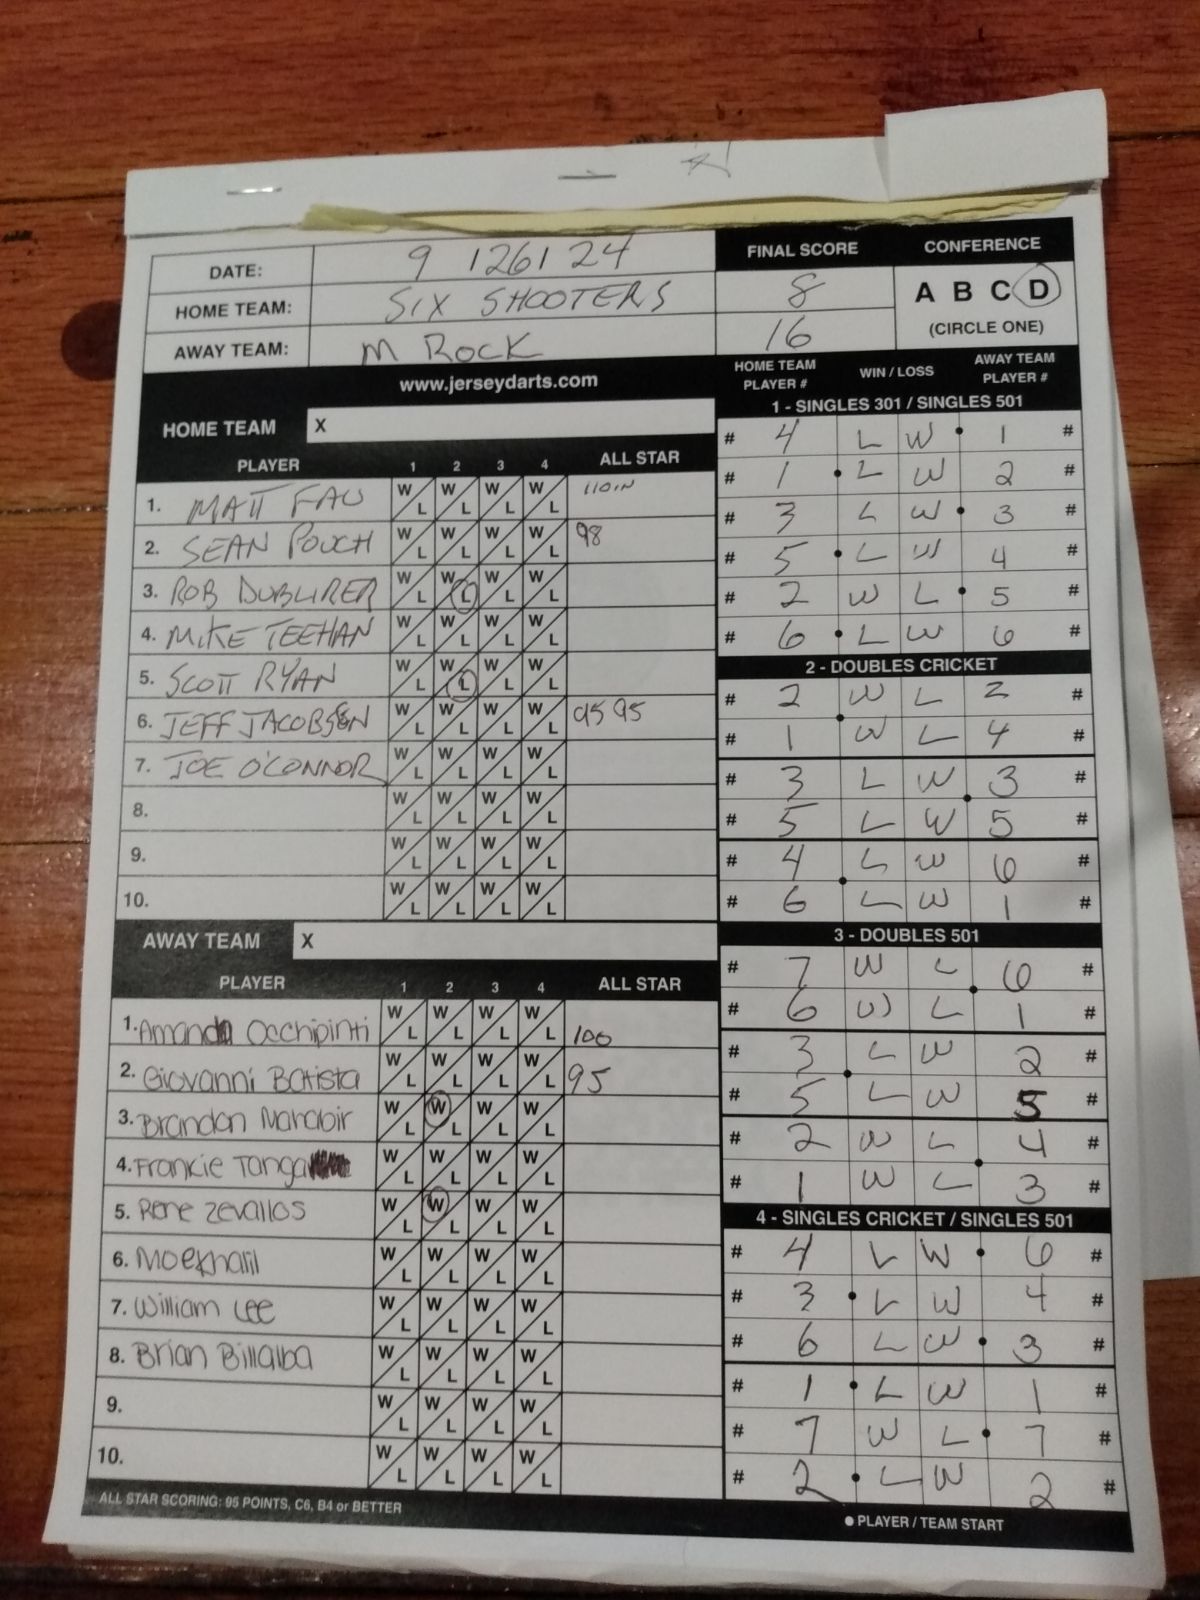 DATE: 9 126124
HOME TEAM: SIX SHOOTERS
AWAY TEAM: M ROCK
FINAL SCORE
8
16
CONFERENCE
A B C D
(CIRCLE ONE)
www.jerseydarts.com
HOME TEAM X
PLAYER 1 2 3 4 ALL STAR
1. MATT FAU W L W L W L W L 110IN
2. SEAN POUCH W L W L W L W L 98
3. ROB DUBLIRER W L W L W L W L
4. MIKE TEEHAN W L W L W L W L
5. SCOTT RYAN W L W L W L W L
6. JEFF JACOBSEN W L W L W L W L 95 95
7. JOE O'CONNOR W L W L W L W L
8. W L W L W L W L
9. W L W L W L W L
10. W L W L W L W L
AWAY TEAM X
PLAYER 1 2 3 4 ALL STAR
1. Amanda Occhipinti W L W L W L W L 100
2. Giovanni Batista W L W L W L W L 95
3. Brandon Maharbir W L W L W L W L
4. Frankie Tanga W L W L W L W L
5. Rene Zevallos W L W L W L W L
6. Moekhalil W L W L W L W L
7. William Lee W L W L W L W L
8. Brian Billalba W L W L W L W L
9. W L W L W L W L
10. W L W L W L W L
ALL STAR SCORING: 95 POINTS, C6, B4 or BETTER
HOME TEAM PLAYER # WIN / LOSS AWAY TEAM PLAYER #
1 - SINGLES 301 / SINGLES 501
# 4 L W 1 #
# 1 L W 2 #
# 3 L W 3 #
# 5 L W 4 #
# 2 W L 5 #
# 6 L W 6 #
2 - DOUBLES CRICKET
# 2 W L 2 #
# 1 W L 4 #
# 3 L W 3 #
# 5 L W 5 #
# 4 L W 6 #
# 6 L W 1 #
3 - DOUBLES 501
# 7 W L 6 #
# 6 W L 1 #
# 3 L W 2 #
# 5 L W 5 #
# 2 W L 4 #
# 1 W L 3 #
4 - SINGLES CRICKET / SINGLES 501
# 4 L W 6 #
# 3 L W 4 #
# 6 L W 3 #
# 1 L W 1 #
# 7 W L 7 #
# 2 L W 2 #
PLAYER / TEAM START